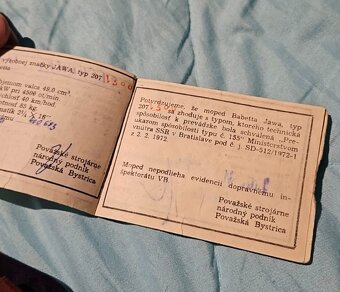 výrobnej značky JAWA, typ 207
300
objemom valca 49.0 cm³
kW pri 4500 ot./min.
rýchlosť 40 km/hod
85 kg
Považské strojárne
národný podnik
Považská Bystrica
Potvrdzujeme, že moped Babetta Jawa, typ
207.300 sa zhoduje s typom, ktorého technická
spôsobilosť k prevádzke bola schválená „Pre-
ukazom spôsobilosti typu č. 155" Ministerstvom
vnútra SSR v Bratislave pod č. j. SD-512/1972-1
z 2. 2. 1972.
Moped nepodlieha evidencii dopravnému in-
špektorátu VB.
Považské strojárne
národný podnik
Považská Bystrica